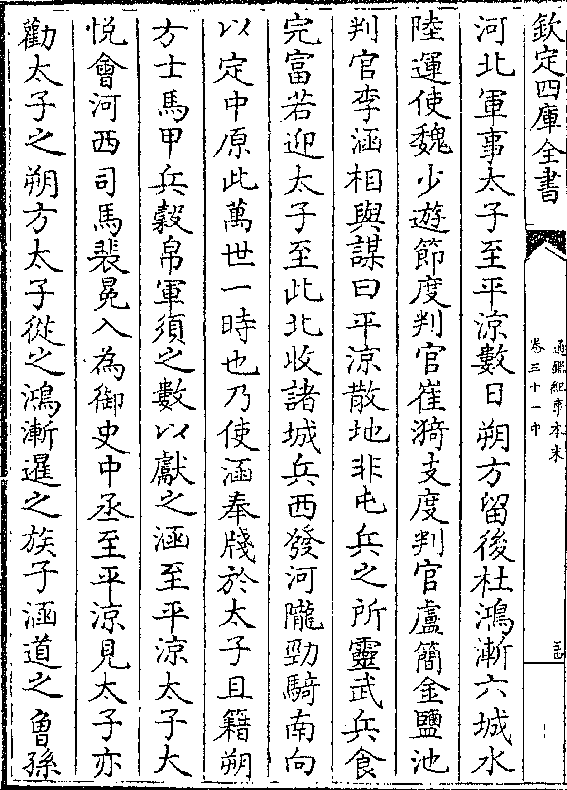 欽定四庫全書
通鑑紀事本末
卷三十一中
河北軍事太子至平涼數日朔方留後杜鴻漸六城水
陸運使魏少遊節度判官崔漪支度判官盧簡金鹽池
判官李涵相與謀曰平涼散地非屯兵之所靈武兵食
完富若迎太子至此北收諸城兵西發河隴勁騎南向
以定中原此萬世一時也乃使涵奉牋於太子且籍朔
方士馬甲兵穀帛軍須之數以獻之涵至平涼太子大
悅會河西司馬裴冕入為御史中丞至平涼見太子亦
勸太子之朔方太子從之鴻漸暹之族子涵道之曾孫